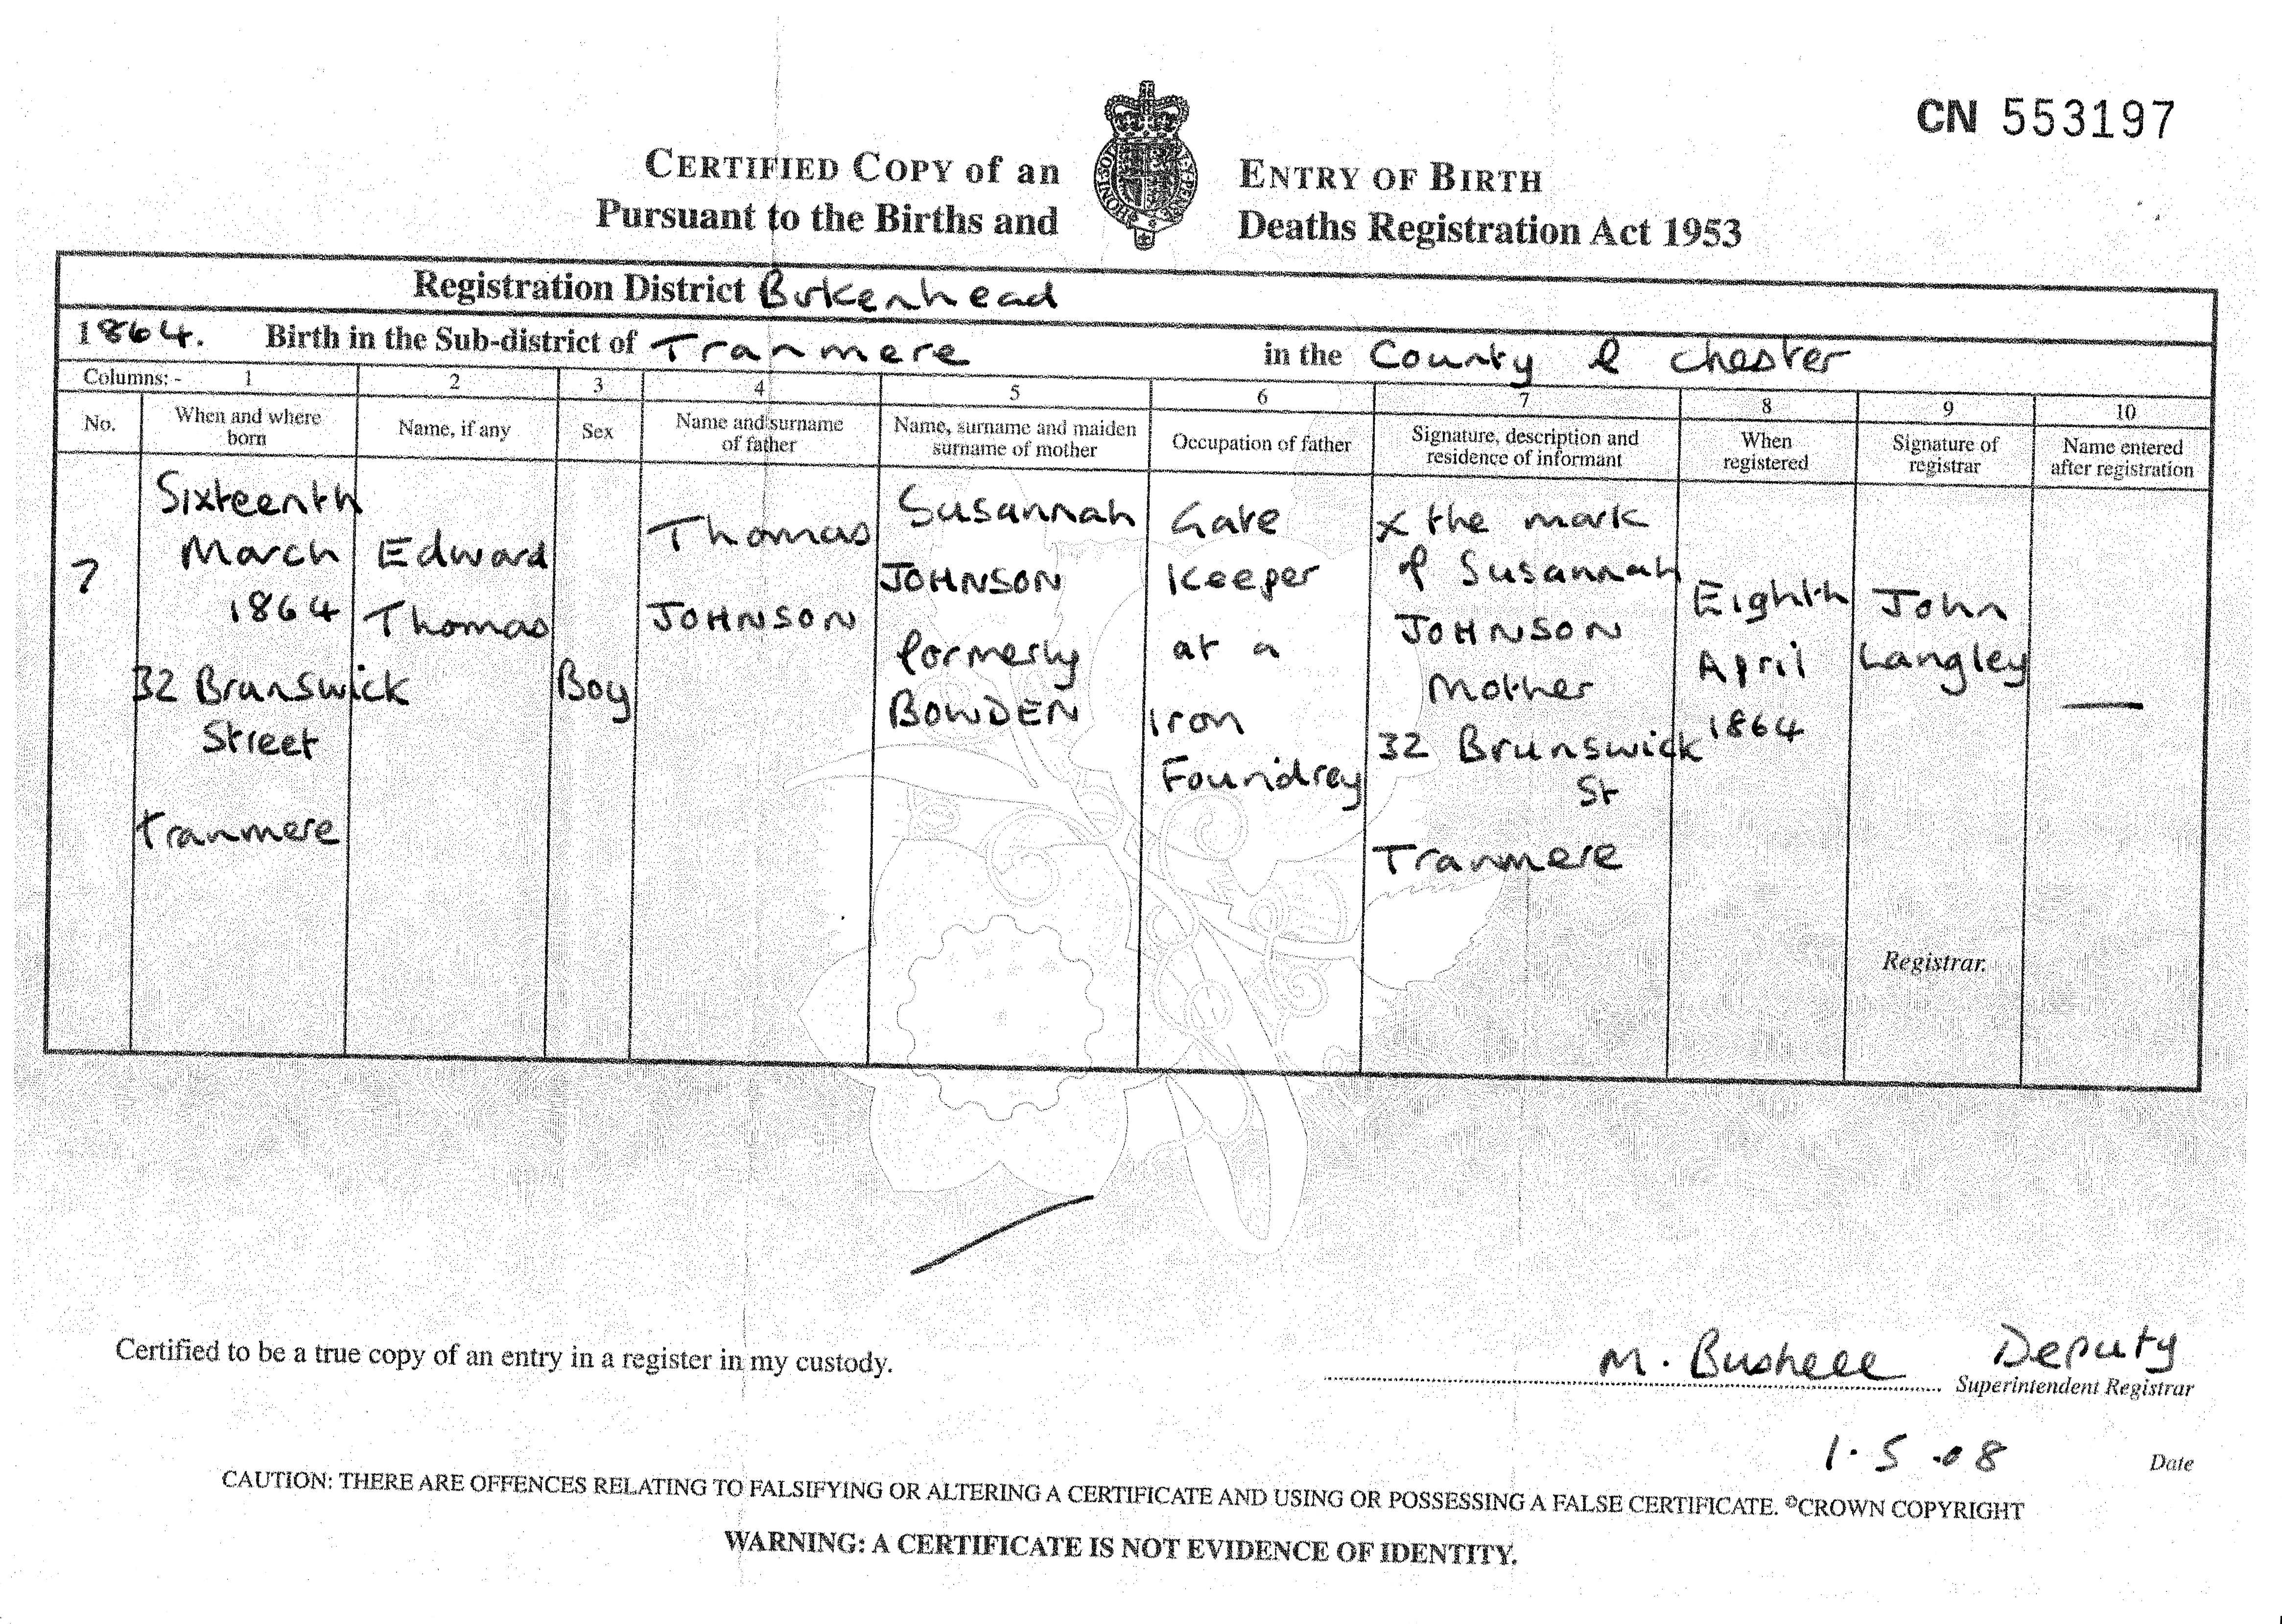 CN 553197
CERTIFIED COPY of an ENTRY OF BIRTH
Pursuant to the Births and Deaths Registration Act 1953
Registration District Birkenhead
1864. Birth in the Sub-district of Tranmere in the County of Chester
Columns:- 1 2 3 4 5 6 7 8 9 10
No.
When and where
born
Name, if any
Sex
Name and surname
of father
Name, surname and maiden
surname of mother
Occupation of father
Signature, description and
residence of informant
When
registered
Signature of
registrar
Name entered
after registration
7
Sixteenth
March
1864
32 Brunswick
Street
Tranmere
Edward
Thomas
Boy
Thomas
JOHNSON
Susannah
JOHNSON
formerly
BOWDEN
Gate
Keeper
at a
Iron
Foundrey
X the mark
of Susannah
JOHNSON
Mother
32 Brunswick
St
Tranmere
Eighth
April
1864
John
Langley
Registrar.
—
Certified to be a true copy of an entry in a register in my custody.
M. Bushell Deputy
Superintendent Registrar
1.5.08 Date
CAUTION: THERE ARE OFFENCES RELATING TO FALSIFYING OR ALTERING A CERTIFICATE AND USING OR POSSESSING A FALSE CERTIFICATE. ©CROWN COPYRIGHT
WARNING: A CERTIFICATE IS NOT EVIDENCE OF IDENTITY.